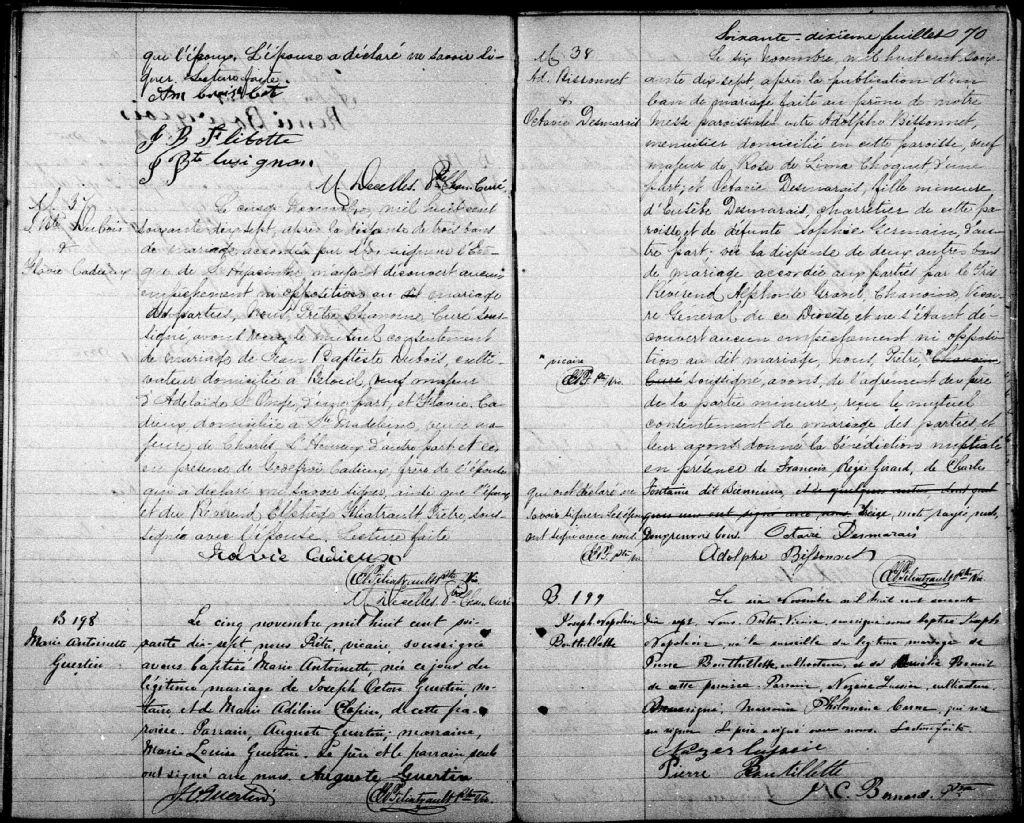 que l'époux. L'épouse a déclaré ne savoir si-
gner. Lecture faite.
J B Phlibotte
J Bte Lusignan
M Decelles. Ptre Chan. Curé.
M 37
J. Bte Dubois
&
Flavie Cadieux
Le cinq Novembre, mil huit cent
soixante dix sept, après la dispense de trois bans
de mariage accordée par Mgr l'Evê-
que de St Hyacinthe, n'ayant découvert aucun
empêchement ni opposition au dit mariage
des parties, Nous, Prêtre, Chanoine, Curé sous-
signé, avons reçu le mutuel consentement
de mariage de Jean Baptiste Dubois, culti-
vateur domicilié à Beloeil, veuf majeur
d'Adelaïde St Onge, d'une part, et Flavie Ca-
dieux domiciliée à Ste Madeleine, veuve ma-
jeure de Charles L'Heureux d'autre part et ce
en présence de Godefroi Cadieux, frère de l'épouse
qui a déclaré ne savoir signer, ainsi que l'époux
et du Révérend Elphège Filiatrault, Prêtre, sous-
signé avec l'épouse. Lecture faite
Flavie Cadieux
E. P. Filiatrault Ptre Vic.
M Decelles Ptre Chan. Curé
B 198
Marie Antoinette
Guertin
Le cinq novembre mil huit cent soi-
xante dix-sept, nous Prêtre, vicaire, soussigné
avons baptisé Marie Antoinette née ce jour du
légitime mariage de Joseph Octave Guertin no-
taire, et de Marie Adéline Clapin, de cette pa-
roisse. Parrain, Auguste Guertin; marraine,
Marie Louise Guertin. Le père et le parrain seuls
ont signé avec nous. Auguste Guertin
J. O. Guertin
E. P. Filiatrault Ptre Vic.
Soixante-dixième feuillet 70
M 38
Ad. Bissonnet
&
Octavie Desmarais
Le six Novembre, mil huit cent soix-
ante dix-sept, après la publication d'un
ban de mariage faite au prône de notre
messe paroissiale entre Adolphe Bissonnet,
menuisier domicilié en cette paroisse, veuf
majeur de Rose de Lima Choquet, d'une
part; et Octavie Desmarais, fille mineure
d'Eusèbe Desmarais, charretier de cette pa-
roisse et de défunte Sophie Germain, d'au-
tre part: vu la dispense de deux autres bans
de mariage accordée aux parties par le Très
Révérend Alphonse Gravel, Chanoine, Vicai-
re Général de ce Diocèse et ne s'étant dé-
couvert aucun empêchement ni opposi-
tion au dit mariage, nous, Prêtre, "Chanoine
"vicaire
E.P.F. Ptre Vic.
Curé soussigné, avons, de l'agrément du père
de la partie mineure, reçu le mutuel
consentement de mariage des parties et
leur avons donné la bénédiction nuptiale
en présence de François Régis Girard, de Charles
Fontaine dit Bienvenu, et de quelques autres dont quel-
ques uns ont signé avec nous. Treize mots rayés nuls,
qui ont déclaré ne
savoir signer. Les époux
ont signé avec nous.
E.P.F. ptre vic
Octavie Desmarais
Adolphe Bissonnet
E. P. Filiatrault Ptre Vic.
B 199
Joseph Napoléon
Bouthillette
Le six Novembre mil huit cent soixante
dix sept, Nous, Prêtre, Vicaire, soussigné avons baptisé Joseph
Napoléon, né la veille du légitime mariage de
Pierre Bouthillette, cultivateur, et de Benoit
de cette paroisse. Parrain, Nazaire Lussier, cultivateur,
soussigné, Marraine Philomène
signer. Le père a signé avec nous. Lecture faite.
Nazer Lussier
Pierre Boutillette
J C Bernard. Ptre